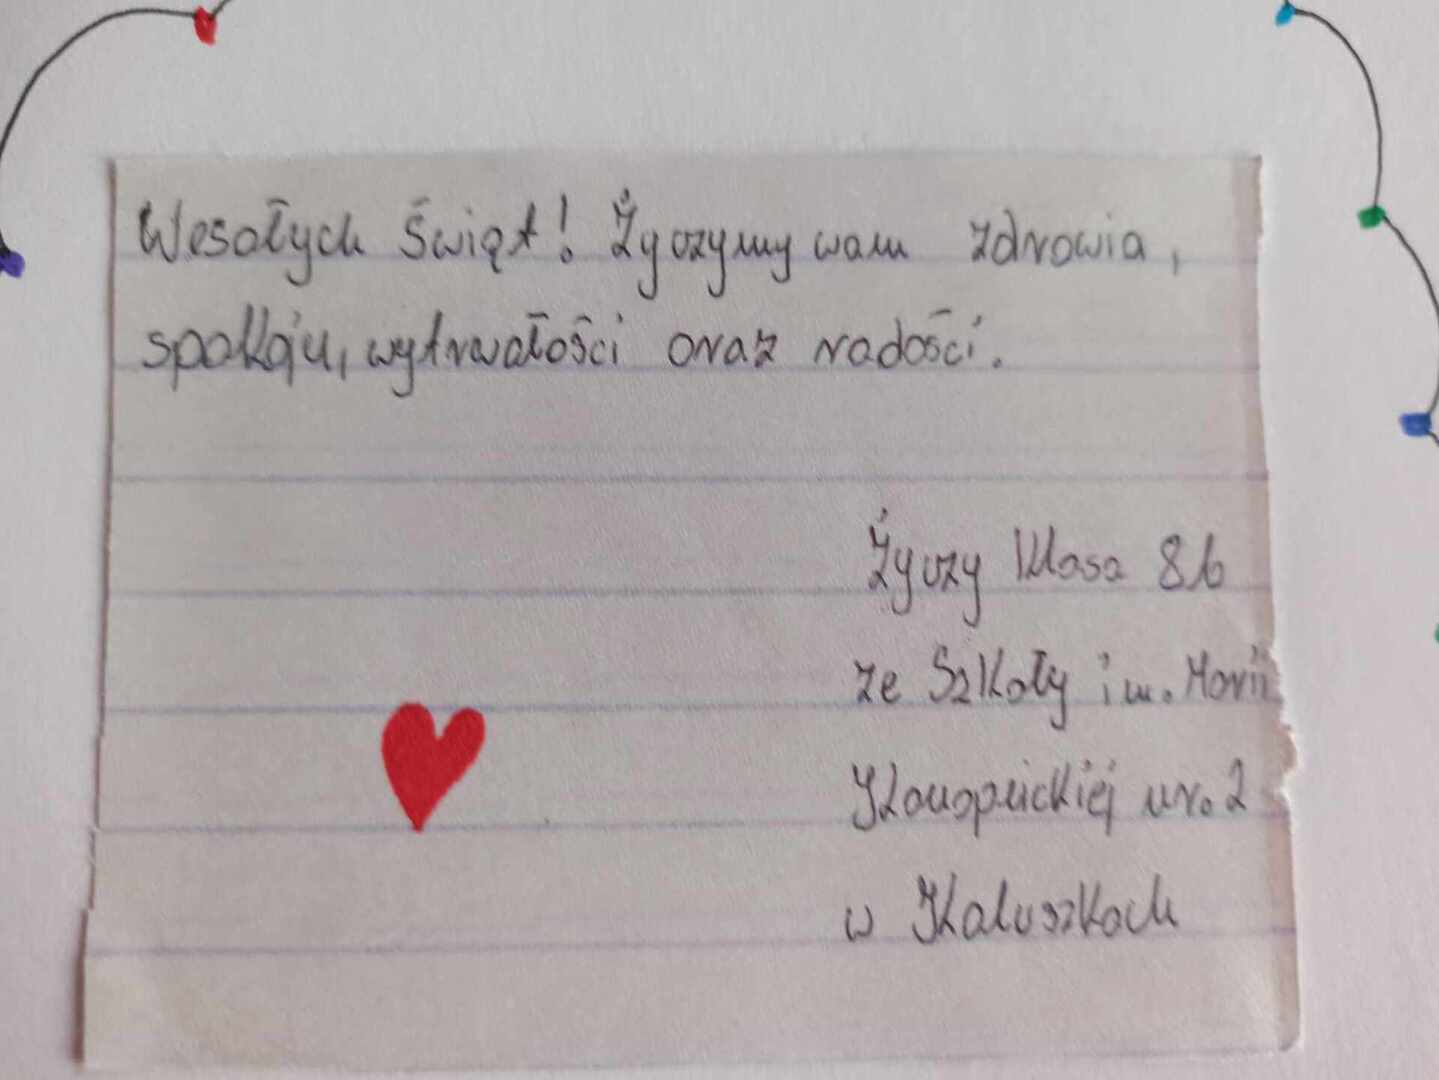 Wesołych Świąt! Życzymy wam zdrowia,
spokoju, wytrwałości oraz radości.
Życzy klasa 8b
ze Szkoły im. Marii
Konopnickiej nr. 2
w Kaluszkach